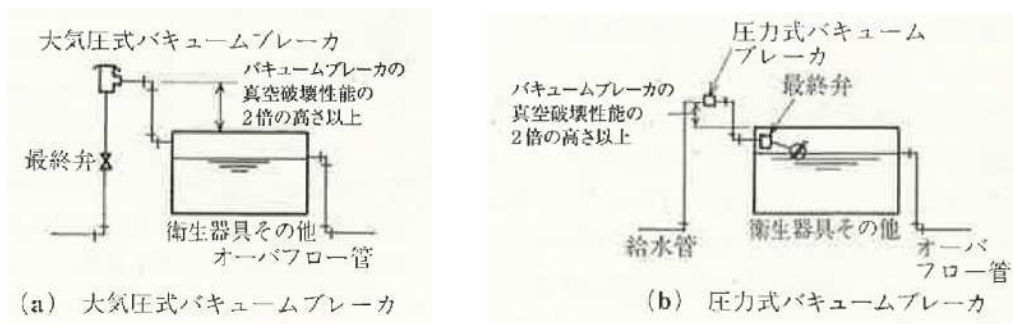 大気圧式バキュームブレーカ
バキュームブレーカの
真空破壊性能の
2倍の高さ以上
最終弁
衛生器具その他
オーバフロー管
(a) 大気圧式バキュームブレーカ
圧力式バキューム
ブレーカ
最終弁
バキュームブレーカの
真空破壊性能の
2倍の高さ以上
給水管
衛生器具その他
オーバ
フロー管
(b) 圧力式バキュームブレーカ